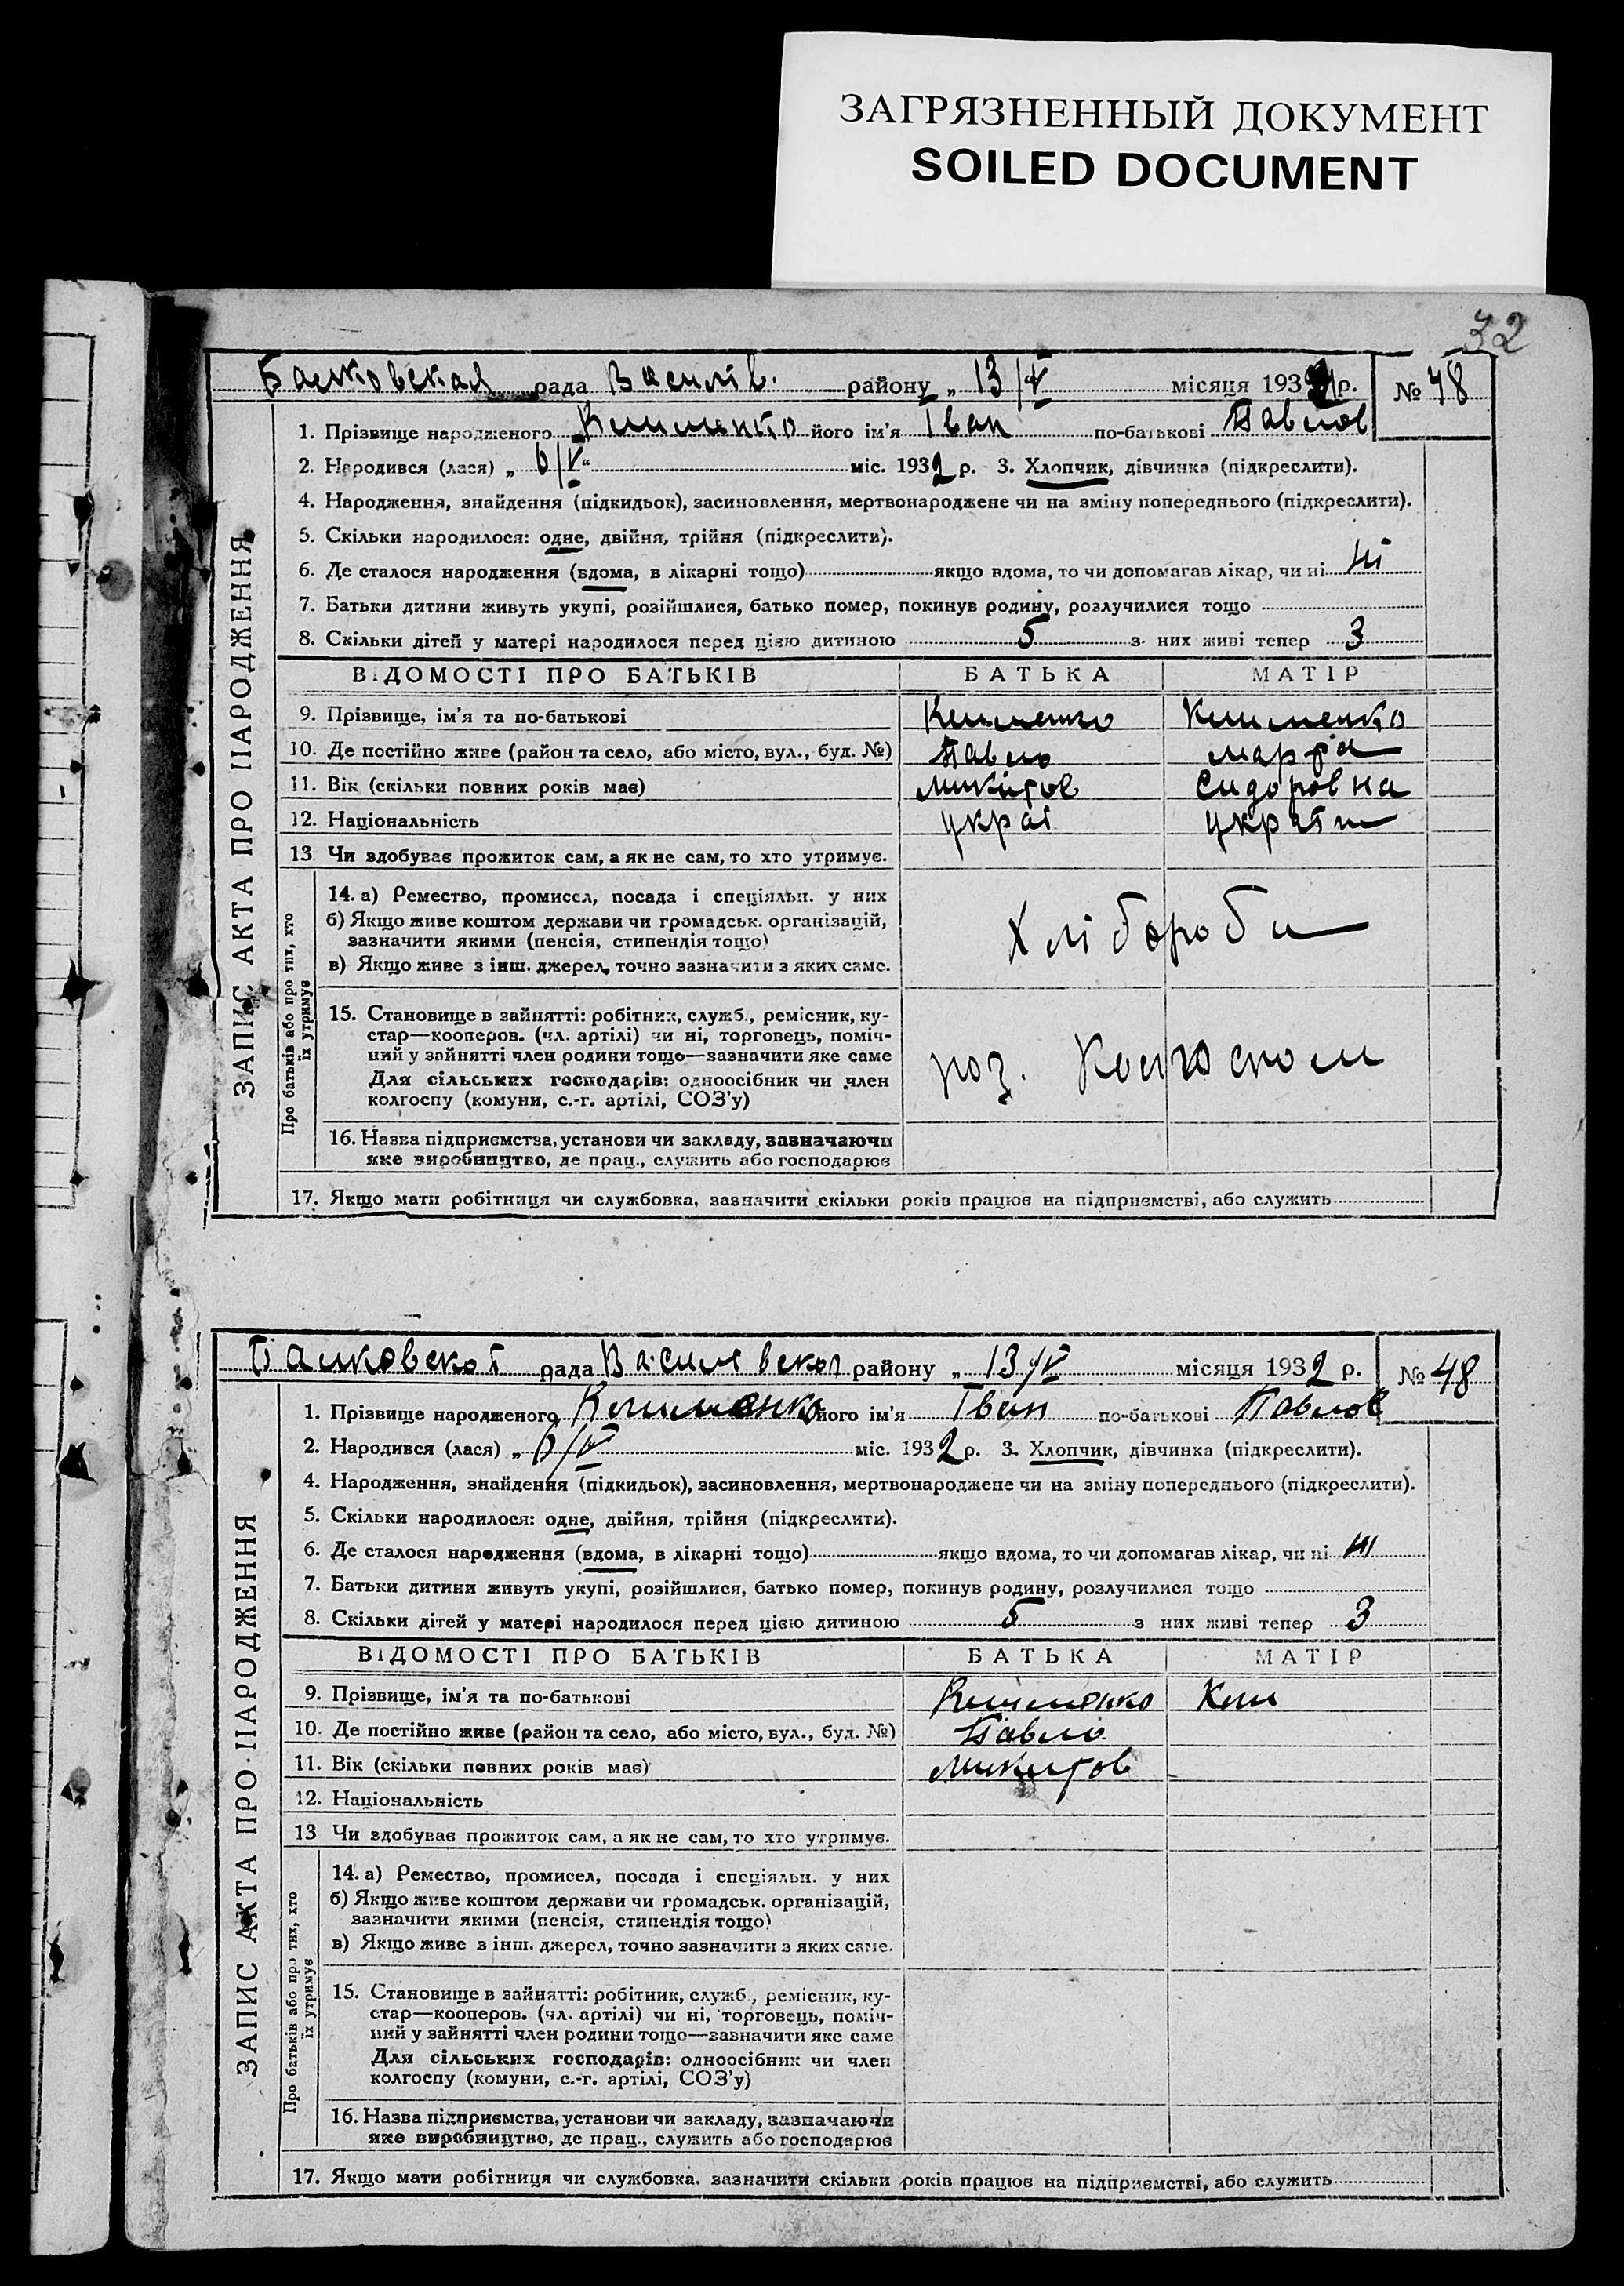 ЗАГРЯЗНЕННЫЙ ДОКУМЕНТ
SOILED DOCUMENT
32
Балковская рада Василів. району „ 13/V місяця 1932 р. № 48
1. Прізвище народженого Клименко його ім'я Іван по-батькові Павлов
2. Народився (лася) „ 6/V “ міс. 1932 р. 3. Хлопчик, дівчинка (підкреслити).
4. Народження, знайдення (підкидьок), засиновлення, мертвонароджене чи на зміну попереднього (підкреслити).
5. Скільки народилося: одне, двійня, трійня (підкреслити).
6. Де сталося народження (вдома, в лікарні тощо) якщо вдома, то чи допомагав лікар, чи ні ні
7. Батьки дитини живуть укупі, розійшлися, батько помер, покинув родину, розлучилися тощо
8. Скільки дітей у матері народилося перед цією дитиною 5 з них живі тепер 3
ВІДОМОСТІ ПРО БАТЬКІВ БАТЬКА МАТІР
9. Прізвище, ім'я та по-батькові Клименко Клименко
10. Де постійно живе (район та село, або місто, вул., буд. №) Павло Марфа
11. Вік (скільки повних років має) Микитов Сидоровна
12. Національність украї україн
13 Чи здобуває прожиток сам, а як не сам, то хто утримує.
14. а) Ремество, промисел, посада і спеціяльн. у них
б) Якщо живе коштом держави чи громадськ. організацій,
зазначити якими (пенсія, стипендія тощо)
в) Якщо живе з інш. джерел, точно зазначити з яких саме.
Хлібороби
15. Становище в зайнятті: робітник, служб., ремісник, ку-
стар—кооперов. (чл. артілі) чи ні, торговець, поміч-
ний у зайнятті член родини тощо—зазначити яке саме
Для сільських господарів: одноосібник чи член
колгоспу (комуни, с.-г. артілі, СОЗ'у)
16. Назва підприємства, установи чи закладу, зазначаючи
яке виробництво, де прац., служить або господарює
17. Якщо мати робітниця чи службовка, зазначити скільки років працює на підприємстві, або служить
ЗАПИС АКТА ПРО НАРОДЖЕННЯ
Про батьків або про тих, хто
їх утримує
Балковскої рада Василівскої району „ 13/V місяця 1932 р. № 48
1. Прізвище народженого Клименко його ім'я Іван по-батькові Павлов
2. Народився (лася) „ 6/V міс. 1932 р. 3. Хлопчик, дівчинка (підкреслити).
4. Народження, знайдення (підкидьок), засиновлення, мертвонароджене чи на зміну попереднього (підкреслити).
5. Скільки народилося: одне, двійня, трійня (підкреслити).
6. Де сталося народження (вдома, в лікарні тощо) якщо вдома, то чи допомагав лікар, чи ні ні
7. Батьки дитини живуть укупі, розійшлися, батько помер, покинув родину, розлучилися тощо
8. Скільки дітей у матері народилося перед цією дитиною 5 з них живі тепер 3
ВІДОМОСТІ ПРО БАТЬКІВ БАТЬКА МАТІР
9. Прізвище, ім'я та по-батькові Клименко Кли
10. Де постійно живе (район та село, або місто, вул., буд. №) Павло
11. Вік (скільки повних років має) Микитов
12. Національність
13 Чи здобуває прожиток сам, а як не сам, то хто утримує.
14. а) Ремество, промисел, посада і спеціяльн. у них
б) Якщо живе коштом держави чи громадськ. організацій,
зазначити якими (пенсія, стипендія тощо)
в) Якщо живе з інш. джерел, точно зазначити з яких саме.
15. Становище в зайнятті: робітник, служб., ремісник, ку-
стар—кооперов. (чл. артілі) чи ні, торговець, поміч-
ний у зайнятті член родини тощо—зазначити яке саме
Для сільських господарів: одноосібник чи член
колгоспу (комуни, с.-г. артілі, СОЗ'у)
16. Назва підприємства, установи чи закладу, зазначаючи
яке виробництво, де прац., служить або господарює
17. Якщо мати робітниця чи службовка, зазначити скільки років працює на підприємстві, або служить
ЗАПИС АКТА ПРО НАРОДЖЕННЯ
Про батьків або про тих, хто
їх утримує